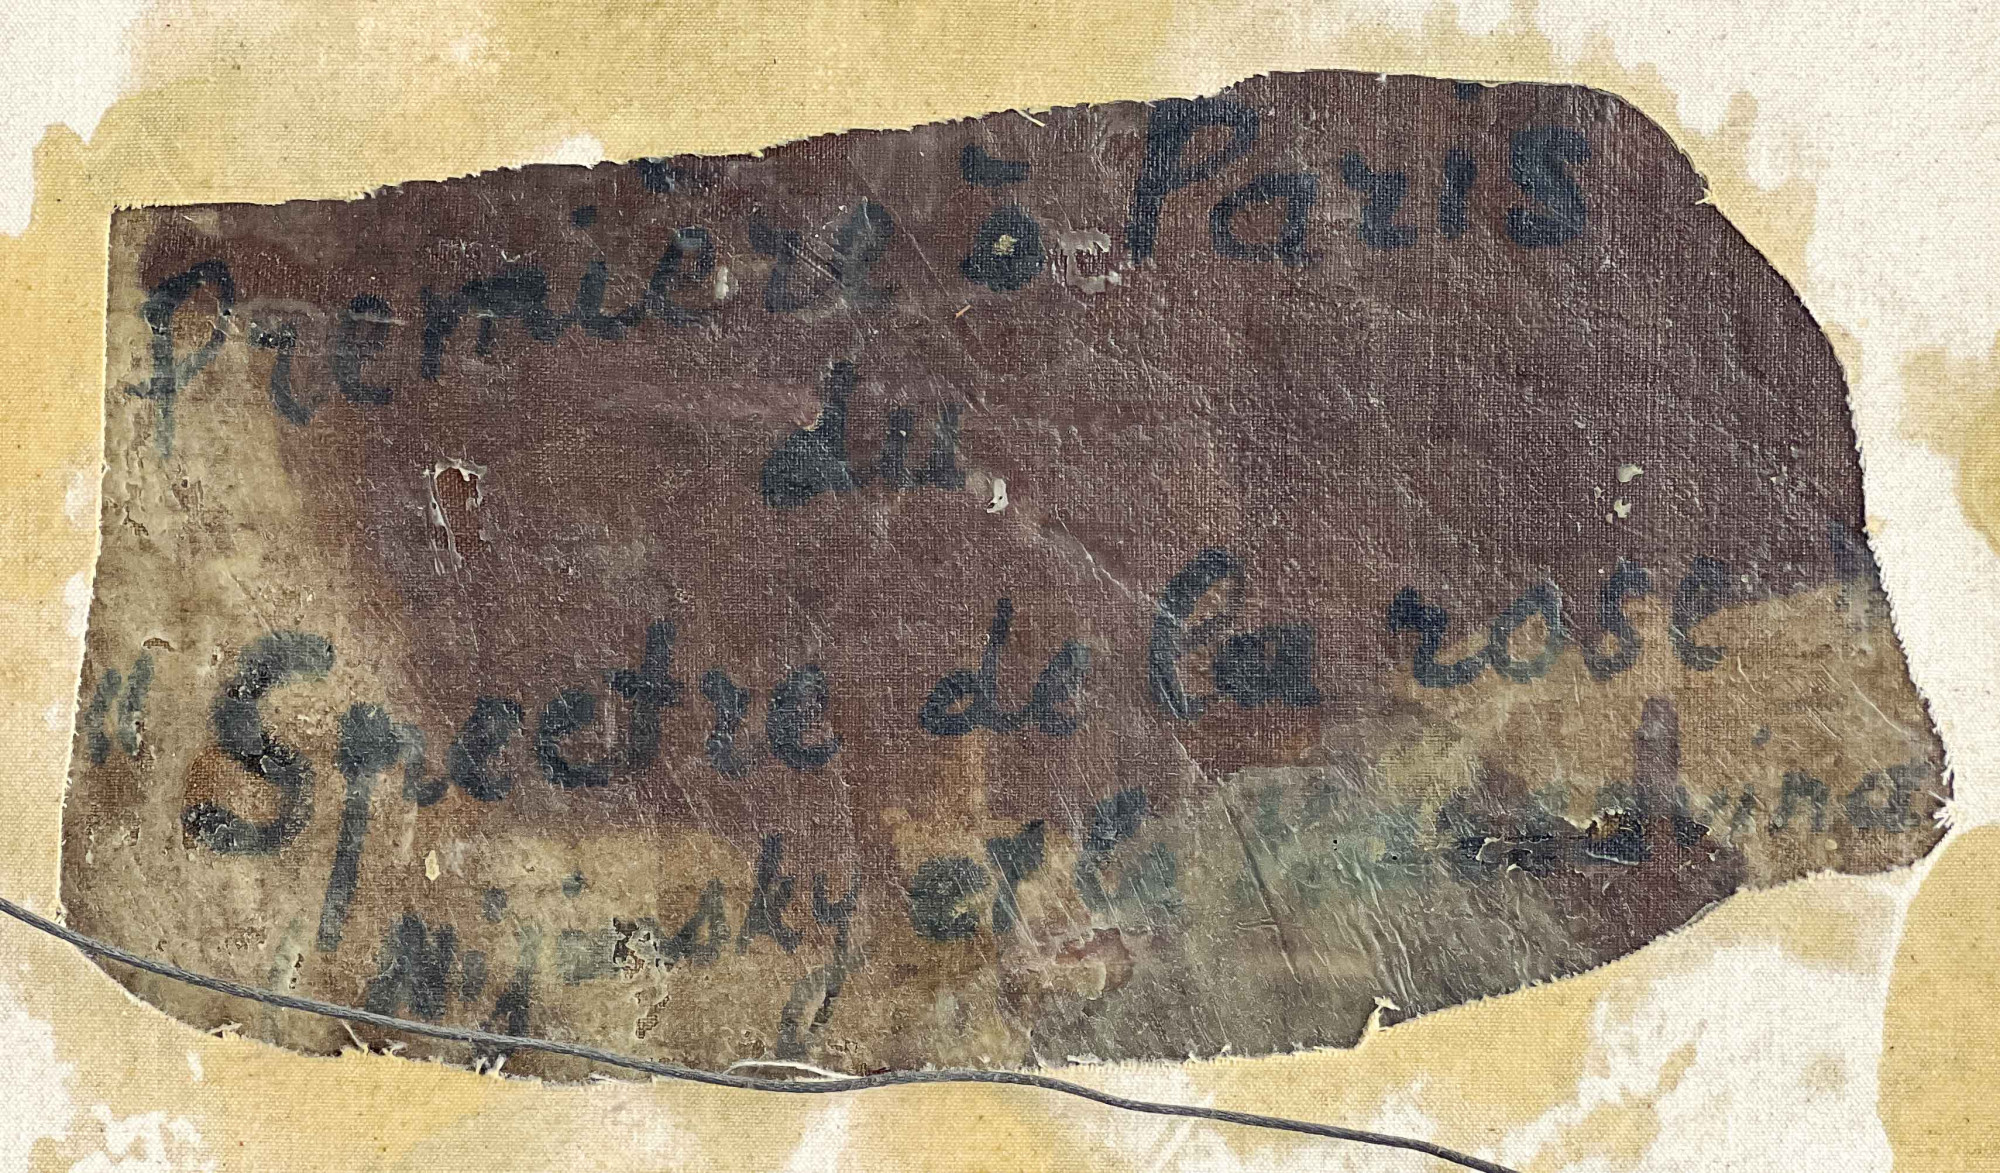 Première à Paris
du
"Spectre de la rose
Nijinsky et la